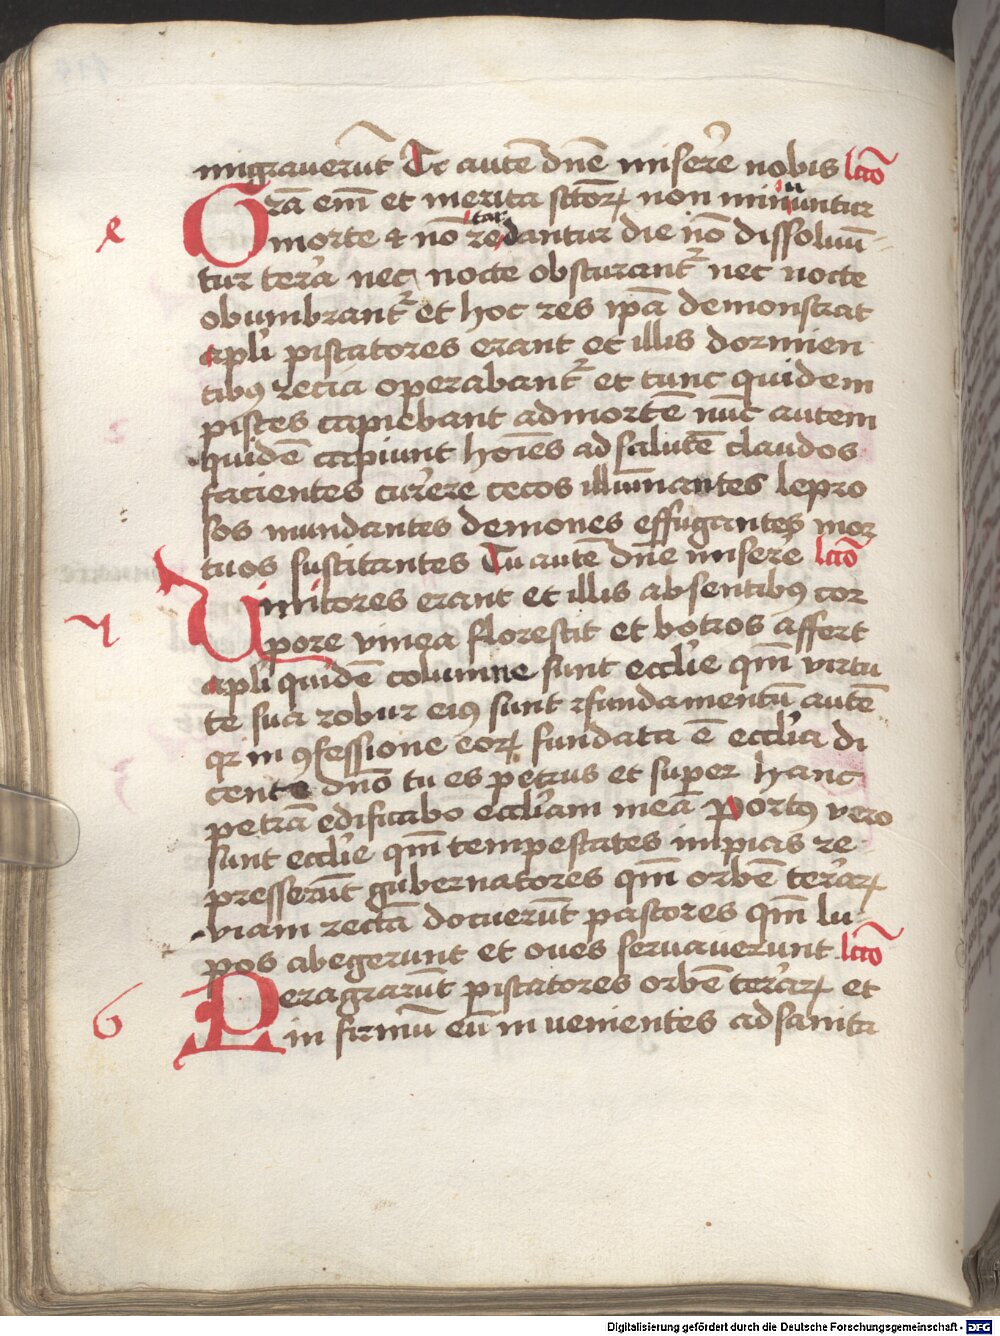 migraverūt Tu autē dnē miserē nobis lcio
Gra em̄ et merita sctōꝝ non minuuntur
e
morte ⁊ nō retardantur die nō dissoluū-
tur terra nec nocte obscurant᷑ nec nocte
obumbrant᷑ et hoc res ipā demonstrat
apl̄i piscatores erant et illis dormien
tibꝰ recia operabant᷑ et tunc quidem
pisces capiebant ad mortē nūc autem
quidē capiunt hoīes ad salutē claudos
facientes currere cecos illuminantes lepro
sos mundantes demones effugantes mor
tuos suscitantes Tu autē dnē miserē lcio
Vinitores erant et illis absentibꝰ cor
pore vinea florescit et botros affert
apl̄i quidē columne sunt eccl̄ie qm̄ virtu
te sua robur eiꝰ sunt ⁊ fundamentū autē
qr in ꝯfessione eoꝝ fundata ē eccl̄ia di
cente dno tu es petrus et super hanc
petrā edificabo eccl̄iam meā Portꝰ vero
sunt eccl̄ie qm̄ tempestates impias re
presserūt gubernatores qm̄ orbē terraꝝ
viam rectā docuerūt pastores qm̄ lu
pos abegerunt et oves servaverunt lcio
6
Peragrarūt piscatores orbē terraꝝ et
in firmū eū in venientes ad sanita
Digitalisierung gefördert durch die Deutsche Forschungsgemeinschaft - DFG